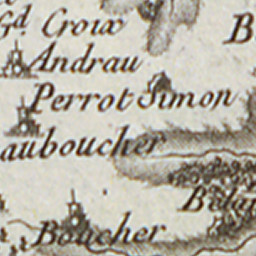 Gd. Croix
B
Andrau
Perrot Simon
auboucher
Bela
Boucher